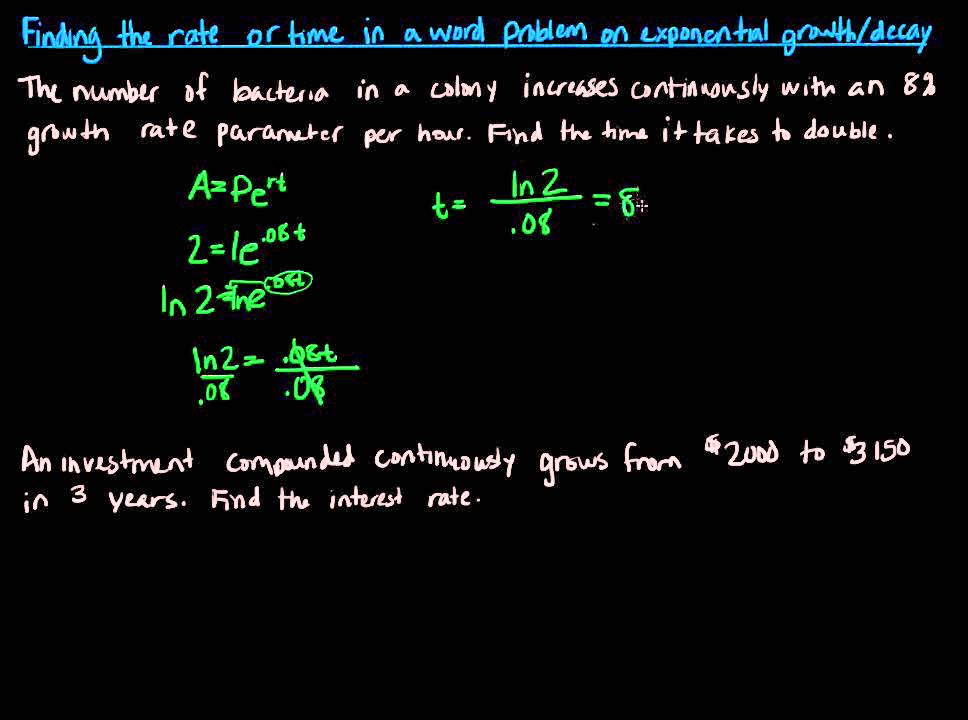 Finding the rate or time in a word problem on exponential growth/decay
The number of bacteria in a colony increases continuously with an 8%
growth rate parameter per hour. Find the time it takes to double.
A=Pe^rt
2=1e^.08t
ln 2=ln e^.08t
ln 2/.08 = .08t/.08
t= ln 2/.08 = 8
An investment compounded continuously grows from $2000 to $3150
in 3 years. Find the interest rate.